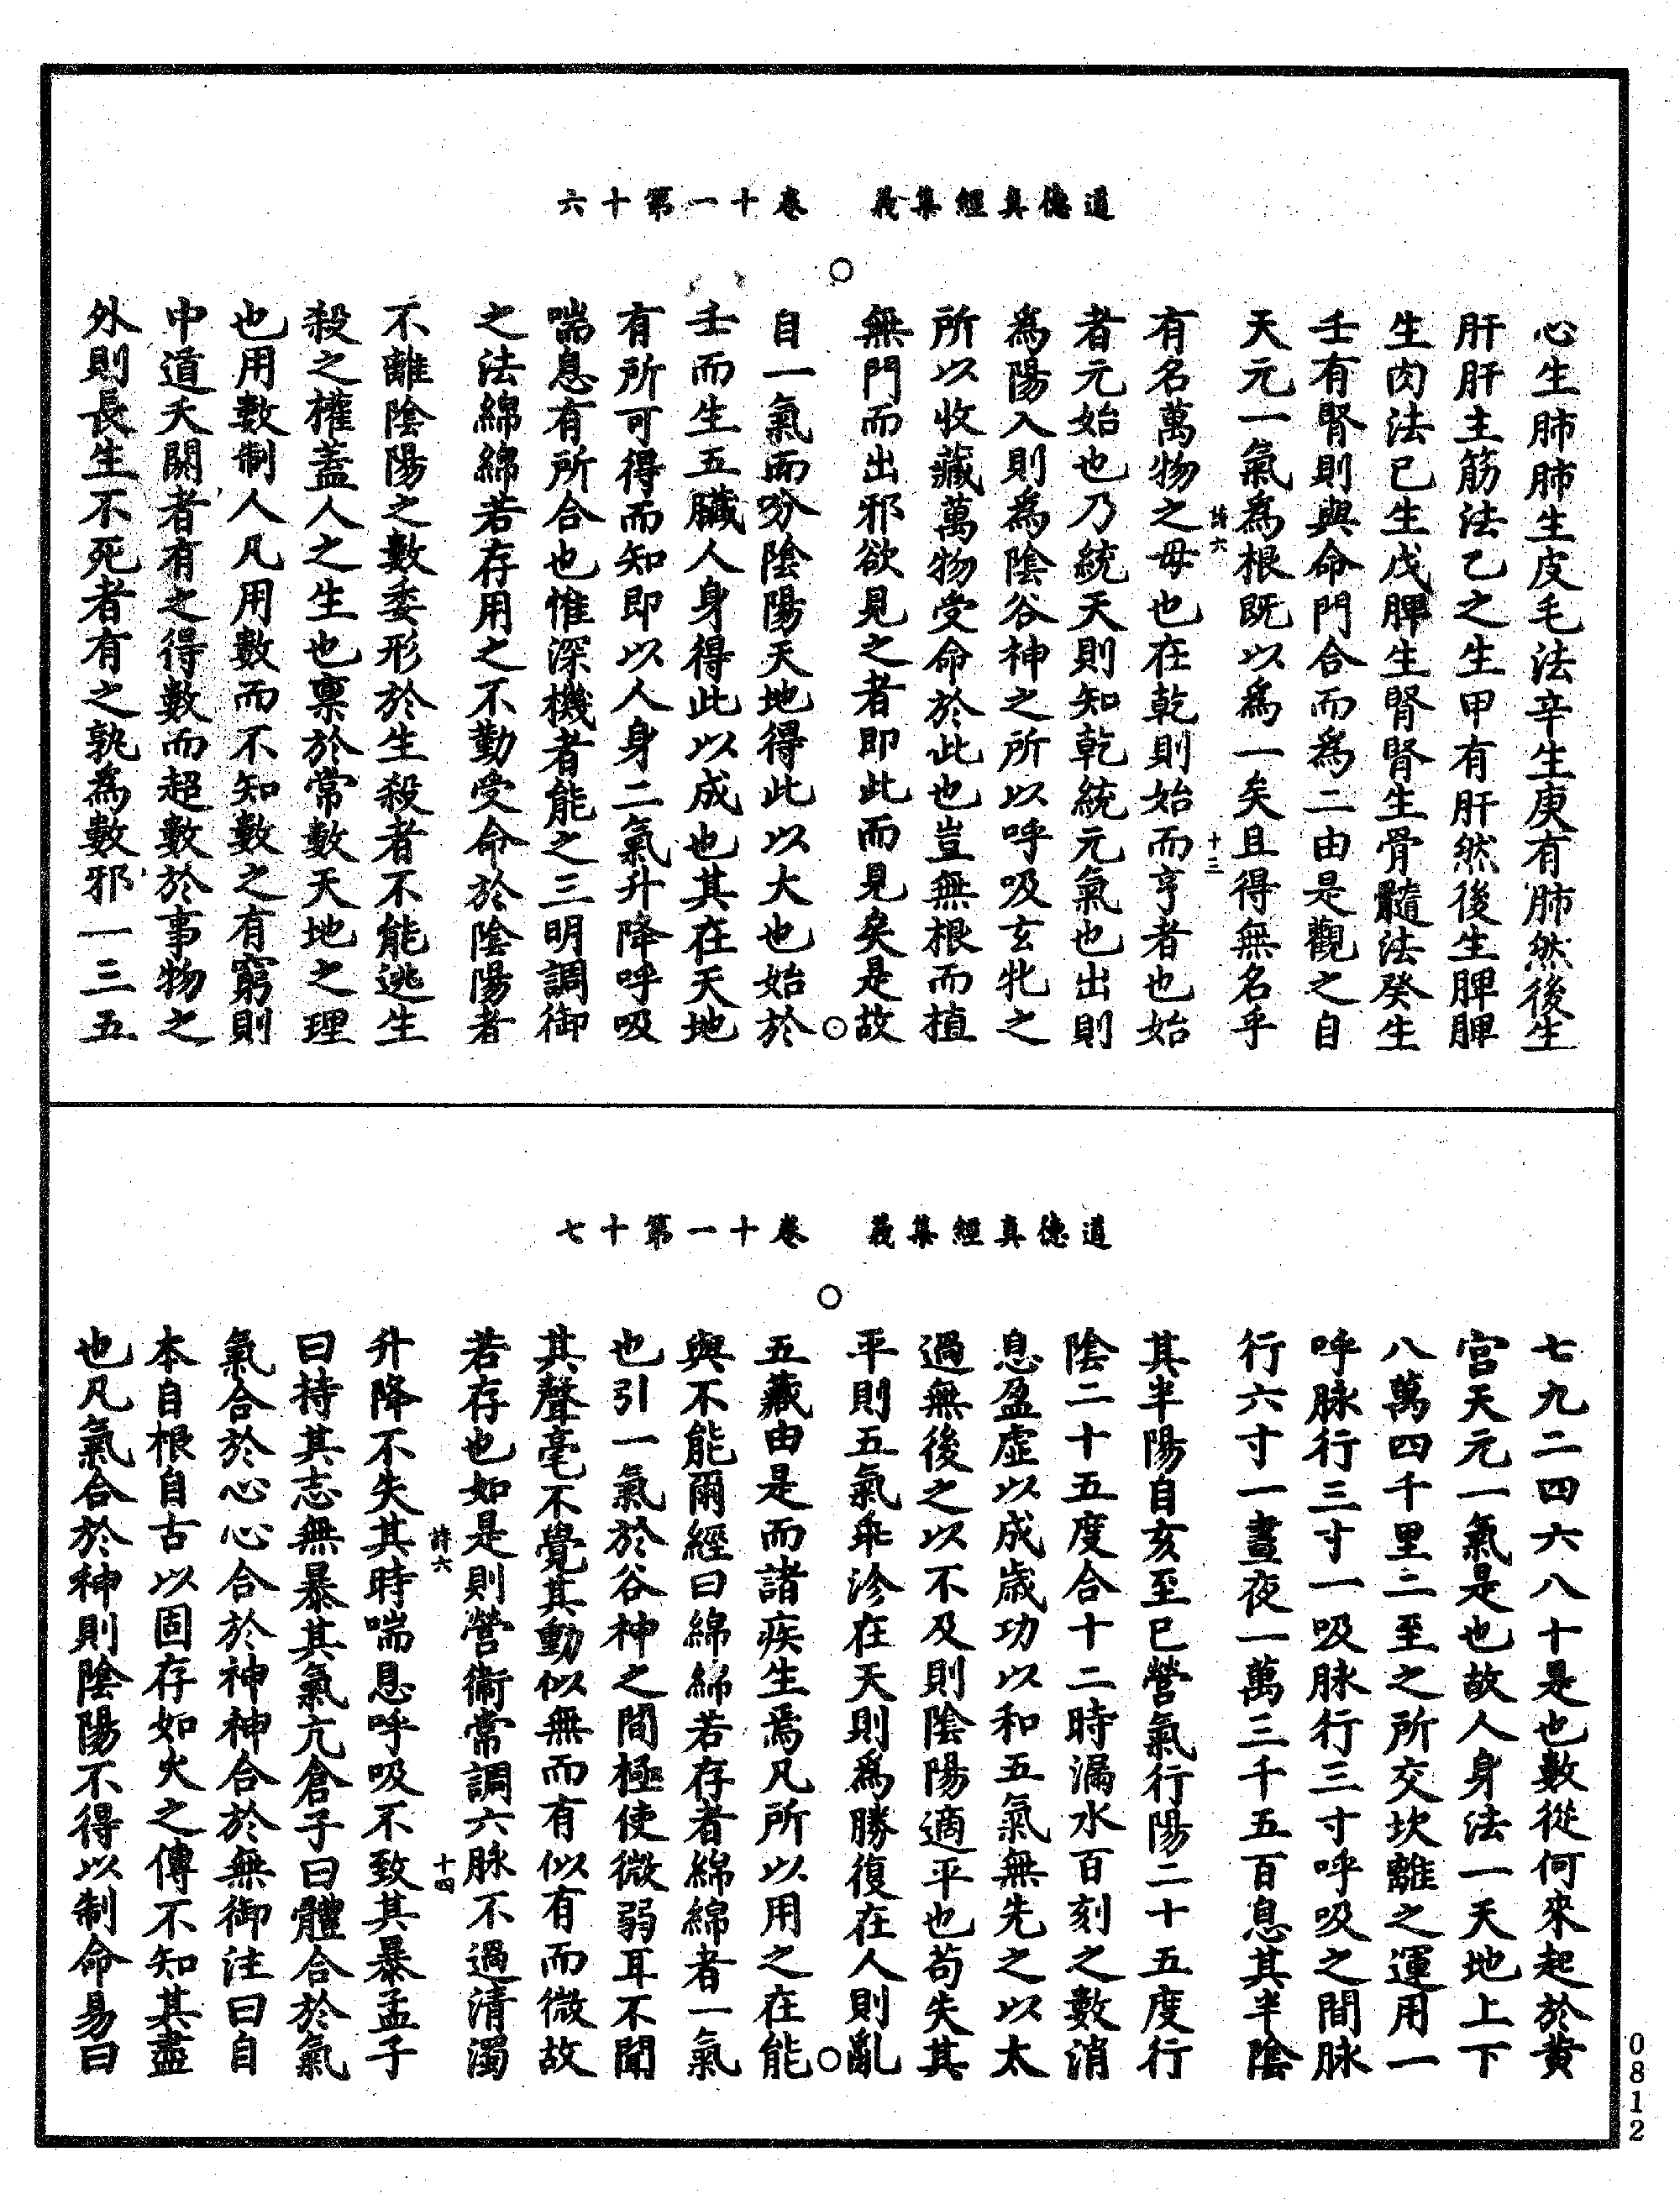 道德真經集義　卷十一第十六
心生肺肺生皮毛法辛生庚有肺然後生
肝肝主筋法乙之生甲有肝然後生脾脾
生肉法己生戊脾生腎腎生骨髓法癸生
壬有腎則與命門合而為二由是觀之自
天元一氣為根既以為一矣且得無名乎
詩六　十三
有名萬物之母也在乾則始而亨者也始
者元始也乃統天則知乾統元氣也出則
為陽入則為陰谷神之所以呼吸玄牝之
所以收藏萬物受命於此也豈無根而植
無門而出邪欲見之者即此而見矣是故
自一氣而吩陰陽天地得此以大也始於
壬而生五臟人身得此以成也其在天地
有所可得而知即以人身二氣升降呼吸
喘息有所合也惟深機者能之三明調御
之法綿綿若存用之不勤受命於陰陽者
不離陰陽之數委形於生殺者不能逃生
殺之權蓋人之生也稟於常數天地之理
也用數制人凡用數而不知數之有窮則
中道夭閼者有之得數而超數於事物之
外則長生不死者有之孰為數邪一三五
道德真經集義　卷十一第十七
七九二四六八十是也數從何來起於黃
宮天元一氣是也故人身法一天地上下
八萬四千里二至之所交坎離之運用一
呼脉行三寸一吸脉行三寸呼吸之間脉
行六寸一晝夜一萬三千五百息其半陰
其半陽自亥至巳營氣行陽二十五度行
陰二十五度合十二時漏水百刻之數消
息盈虛以成歲功以和五氣無先之以太
過無後之以不及則陰陽適平也苟失其
平則五氣乖沴在天則為勝復在人則亂
五藏由是而諸疾生焉凡所以用之在能
與不能爾經曰綿綿若存者綿綿者一氣
也引一氣於谷神之間極使微弱耳不聞
其聲毫不覺其動似無而有似有而微故
若存也如是則營衞常調六脉不過清濁
詩六　十四
升降不失其時喘息呼吸不致其暴孟子
曰持其志無暴其氣亢倉子曰體合於氣
氣合於心心合於神神合於無御注曰自
本自根自古以固存如火之傳不知其盡
也凡氣合於神則陰陽不得以制命易曰
0812